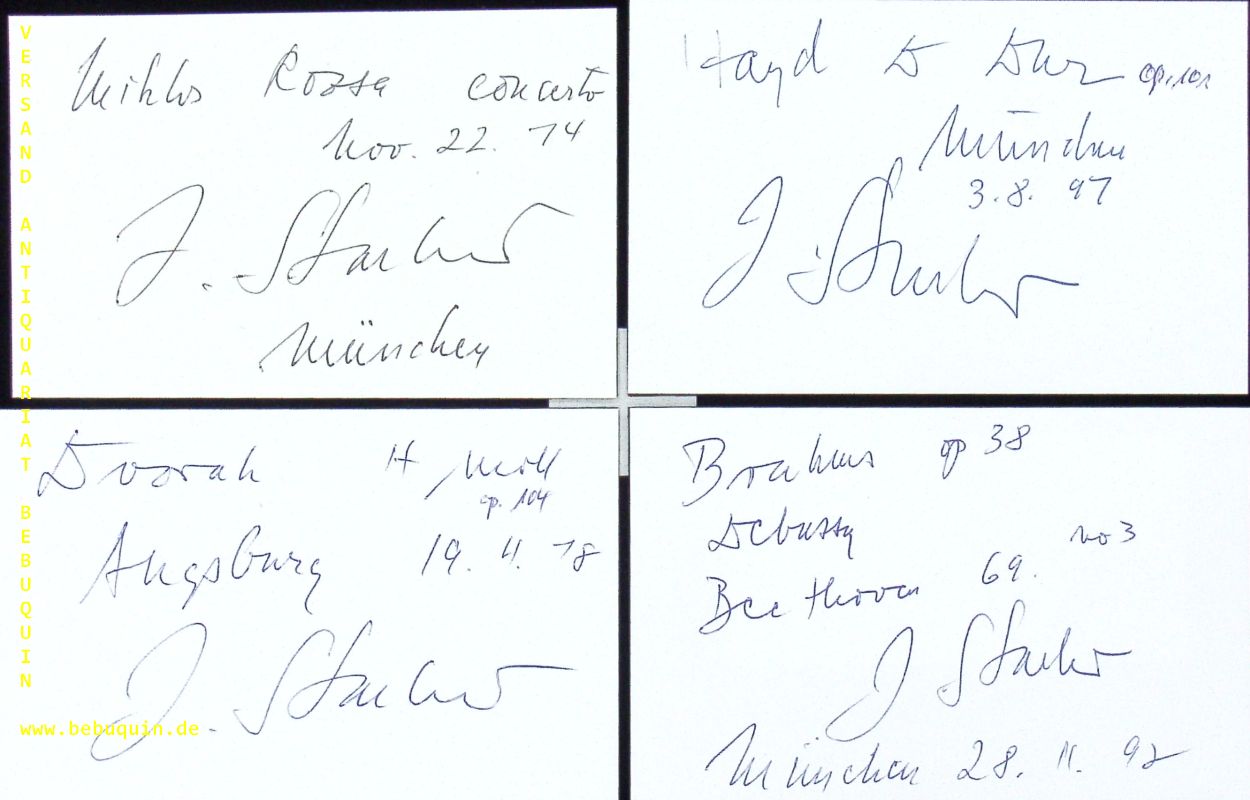 VERSAND ANTIQUARIAT BEBUQUIN
Miklos Rozsa concerto
Nov. 22. 74
J. Starker
München
Haydn D Dur op. 101
München
3. 8. 97
J. Starker
Dvorak H moll
op. 104
Augsburg 19. 11. 78
J. Starker
Brahms op 38
Debussy
no 3
Beethoven 69.
J Starker
München 28. 11. 92
www.bebuquin.de